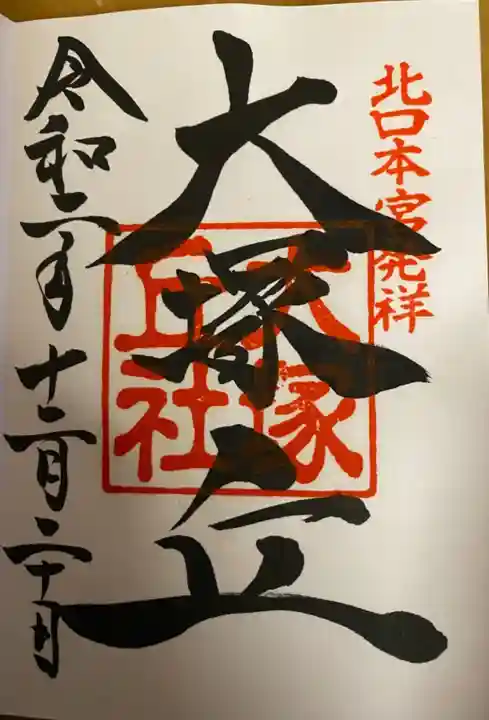 北口本宮発祥
大塚丘
大塚
丘社
令和二年十二月二十日